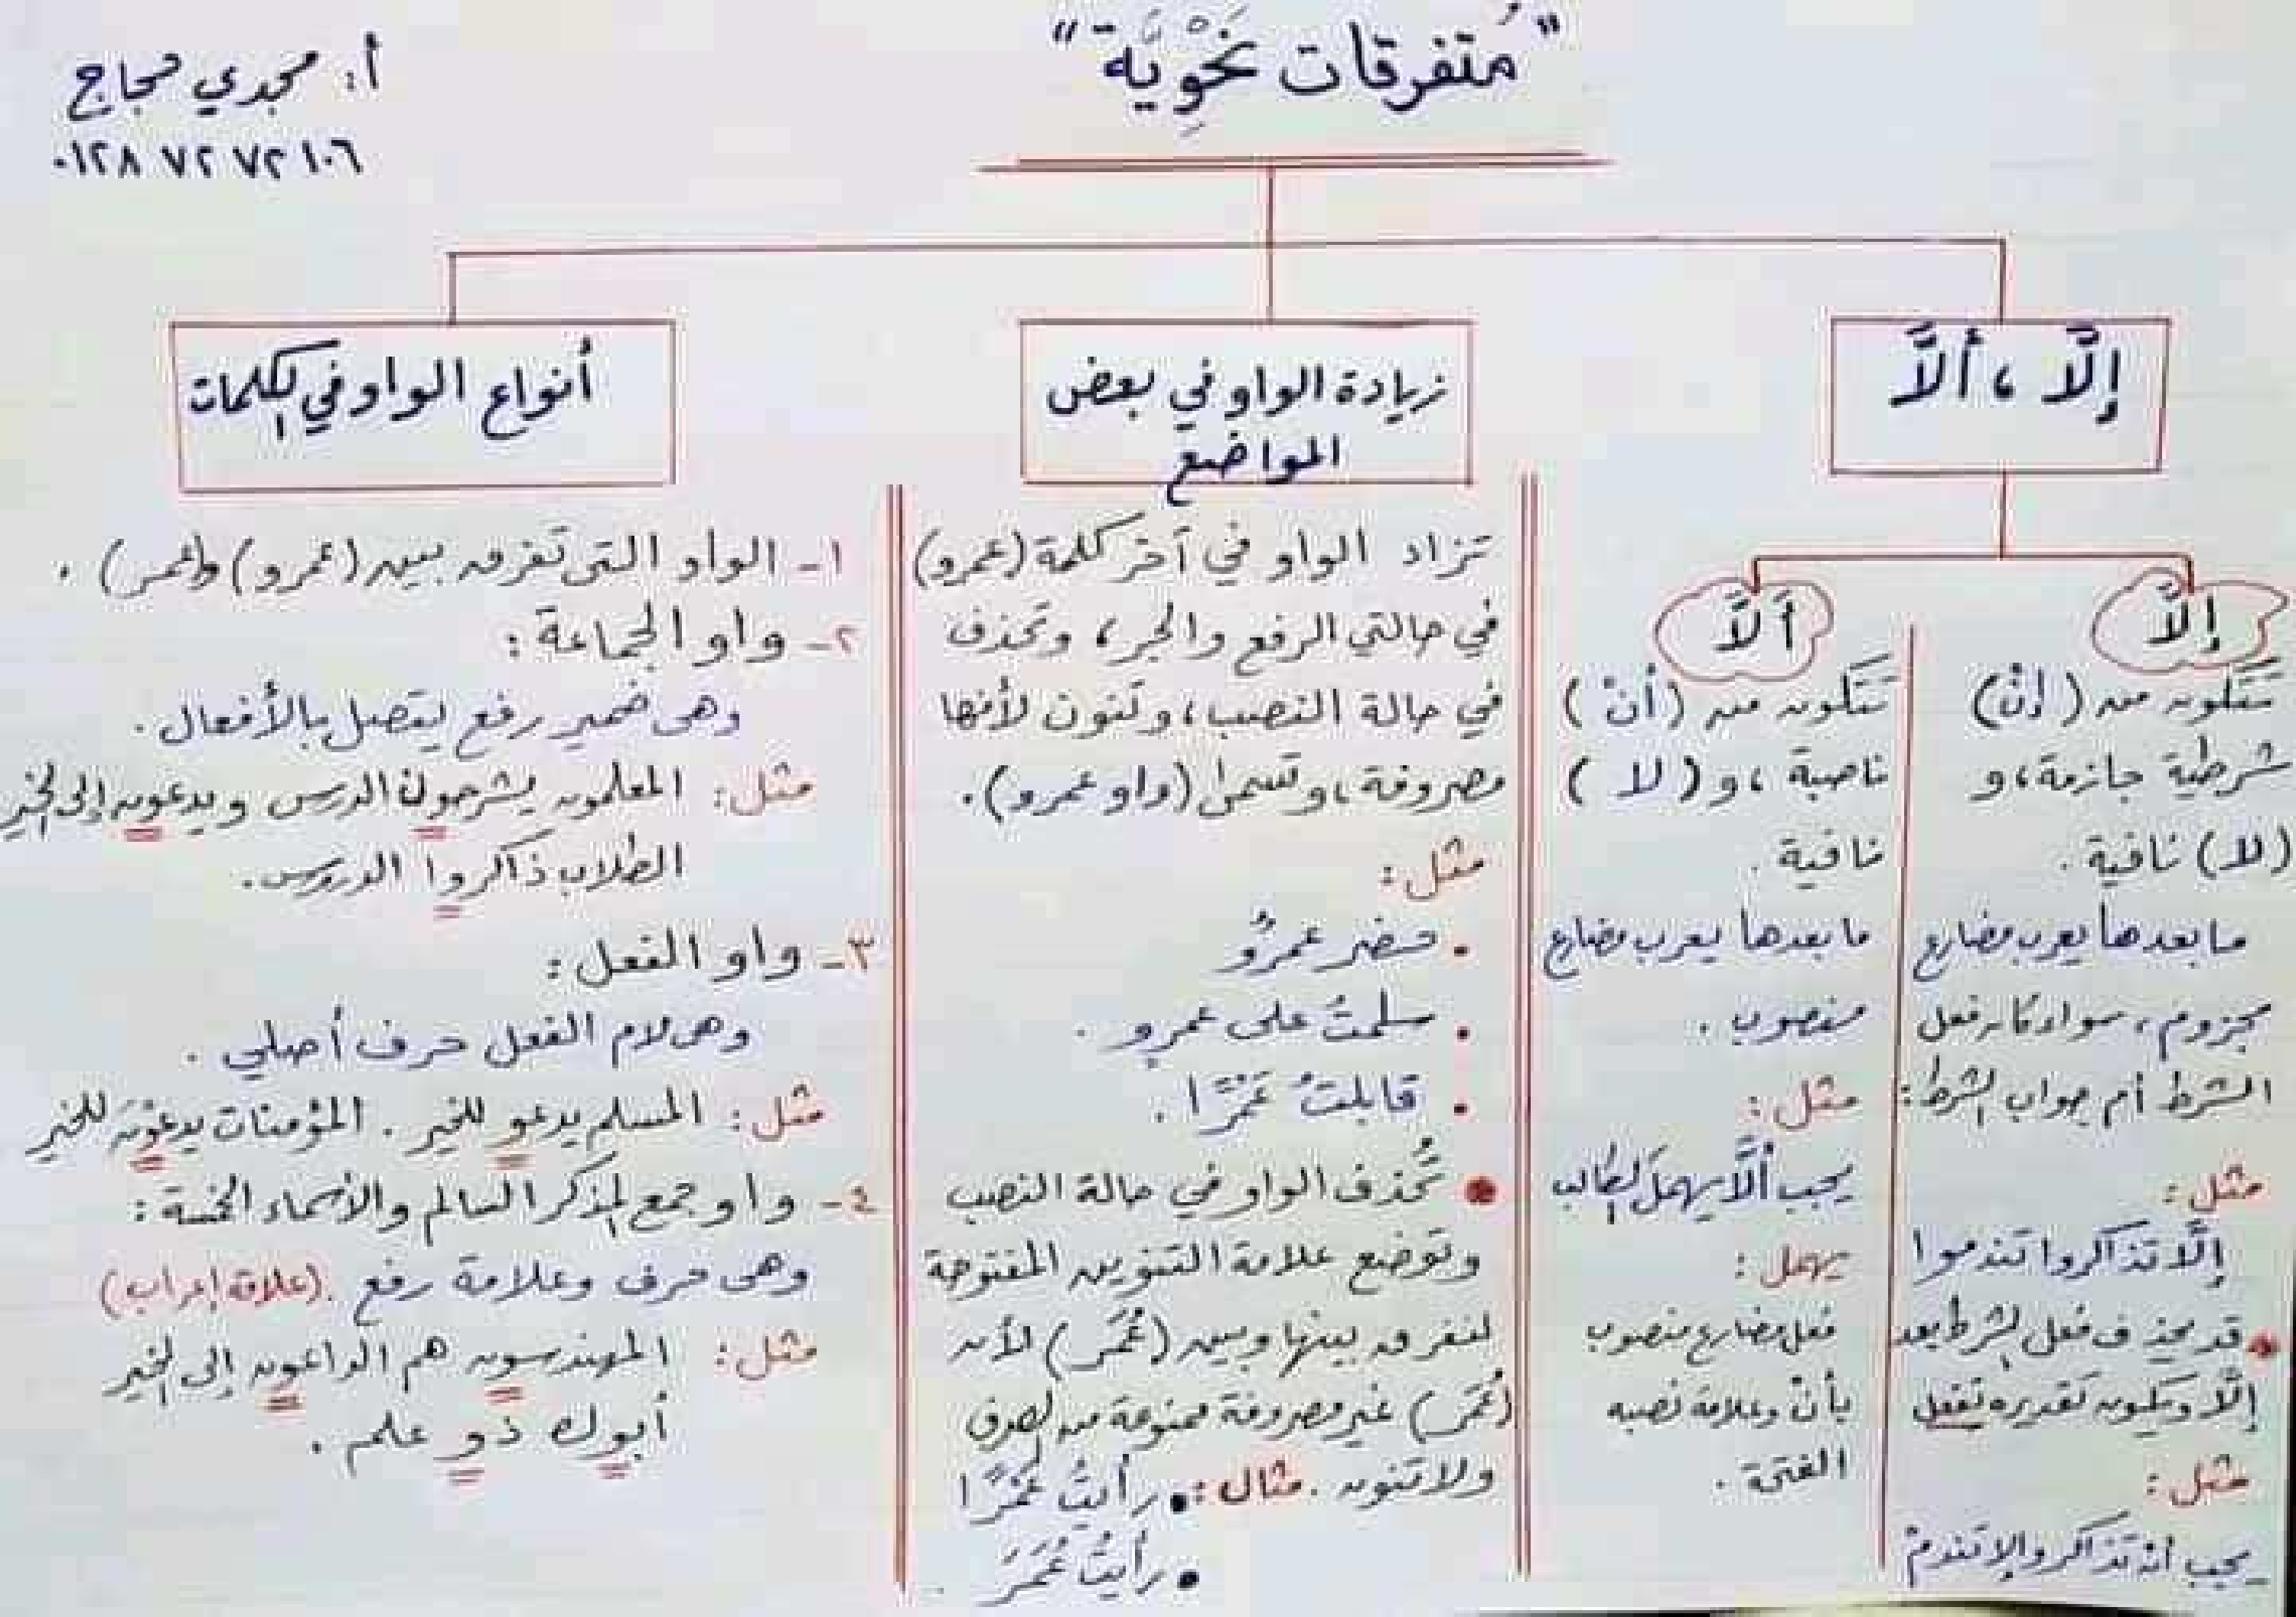 "مُتفرقات نَحْوِيَّة"
أ: مجدي حجاج
٠١٢٨ ٧٢ ٧٢ ١٠٦
إلَّا ، ألَّا
إلَّا
تَتَكون من (إنْ)
شرطية جازمة، و
(لا) نافية .
ما بعدها يعرب مضارع
مجزوم، سواء كان فعل
الشرط أم جواب الشرط:
مثل:
إلَّا تذاكروا تندموا
• قد يحذف فعل الشرط بعد
إلَّا ويكون تقديره تفعل
مثل:
يجب أن تذاكر وإلا تندمْ
ألَّا
تَتَكون من (أنْ)
ناصبة ، و (لا)
نافية .
ما بعدها يعرب مضارع
منصوب .
مثل:
يجب ألَّا يهملَ الطالب
يهمل:
فعل مضارع منصوب
بأنْ وعلامة نصبه
الفتحة .
زيادة الواو في بعض
المواضع
تزاد الواو في آخر كلمة (عمرو)
في حالتي الرفع والجر، وتحذف
في حالة النصب، وتنون لأنها
مصروفة، وتسمى (واو عمرو).
مثل:
• حضر عمرٌو
• سلمتُ على عمرٍو .
• قابلتُ عَمْرًا .
• تُحذف الواو في حالة النصب
وتوضع علامة التنوين المفتوحة
لنفرق بينها وبين (عُمَر) لأن
(عُمَر) غير مصروفة ممنوعة من الصرف
ولا تنون . مثال: • رأيتُ عَمْرًا
• رأيتُ عُمَرَ
أنواع الواو في الكلمات
١- الواو التى تفرق بين (عمرو) و(عمر) .
٢- واو الجماعة:
وهى ضمير رفع يتصل بالأفعال .
مثل: المعلمون يشرحون الدرس ويدعون إلى الخير
الطلاب ذاكروا الدروس.
٣- واو الفعل:
وهى لام الفعل حرف أصلي .
مثل: المسلم يدعو للخير . المؤمنات يدعوْنَ للخير
٤- واو جمع المذكر السالم والأسماء الخمسة:
وهى حرف وعلامة رفع . (علامة إعراب)
مثل: المهندسون هم الداعون إلى الخير
أبوك ذو علم .